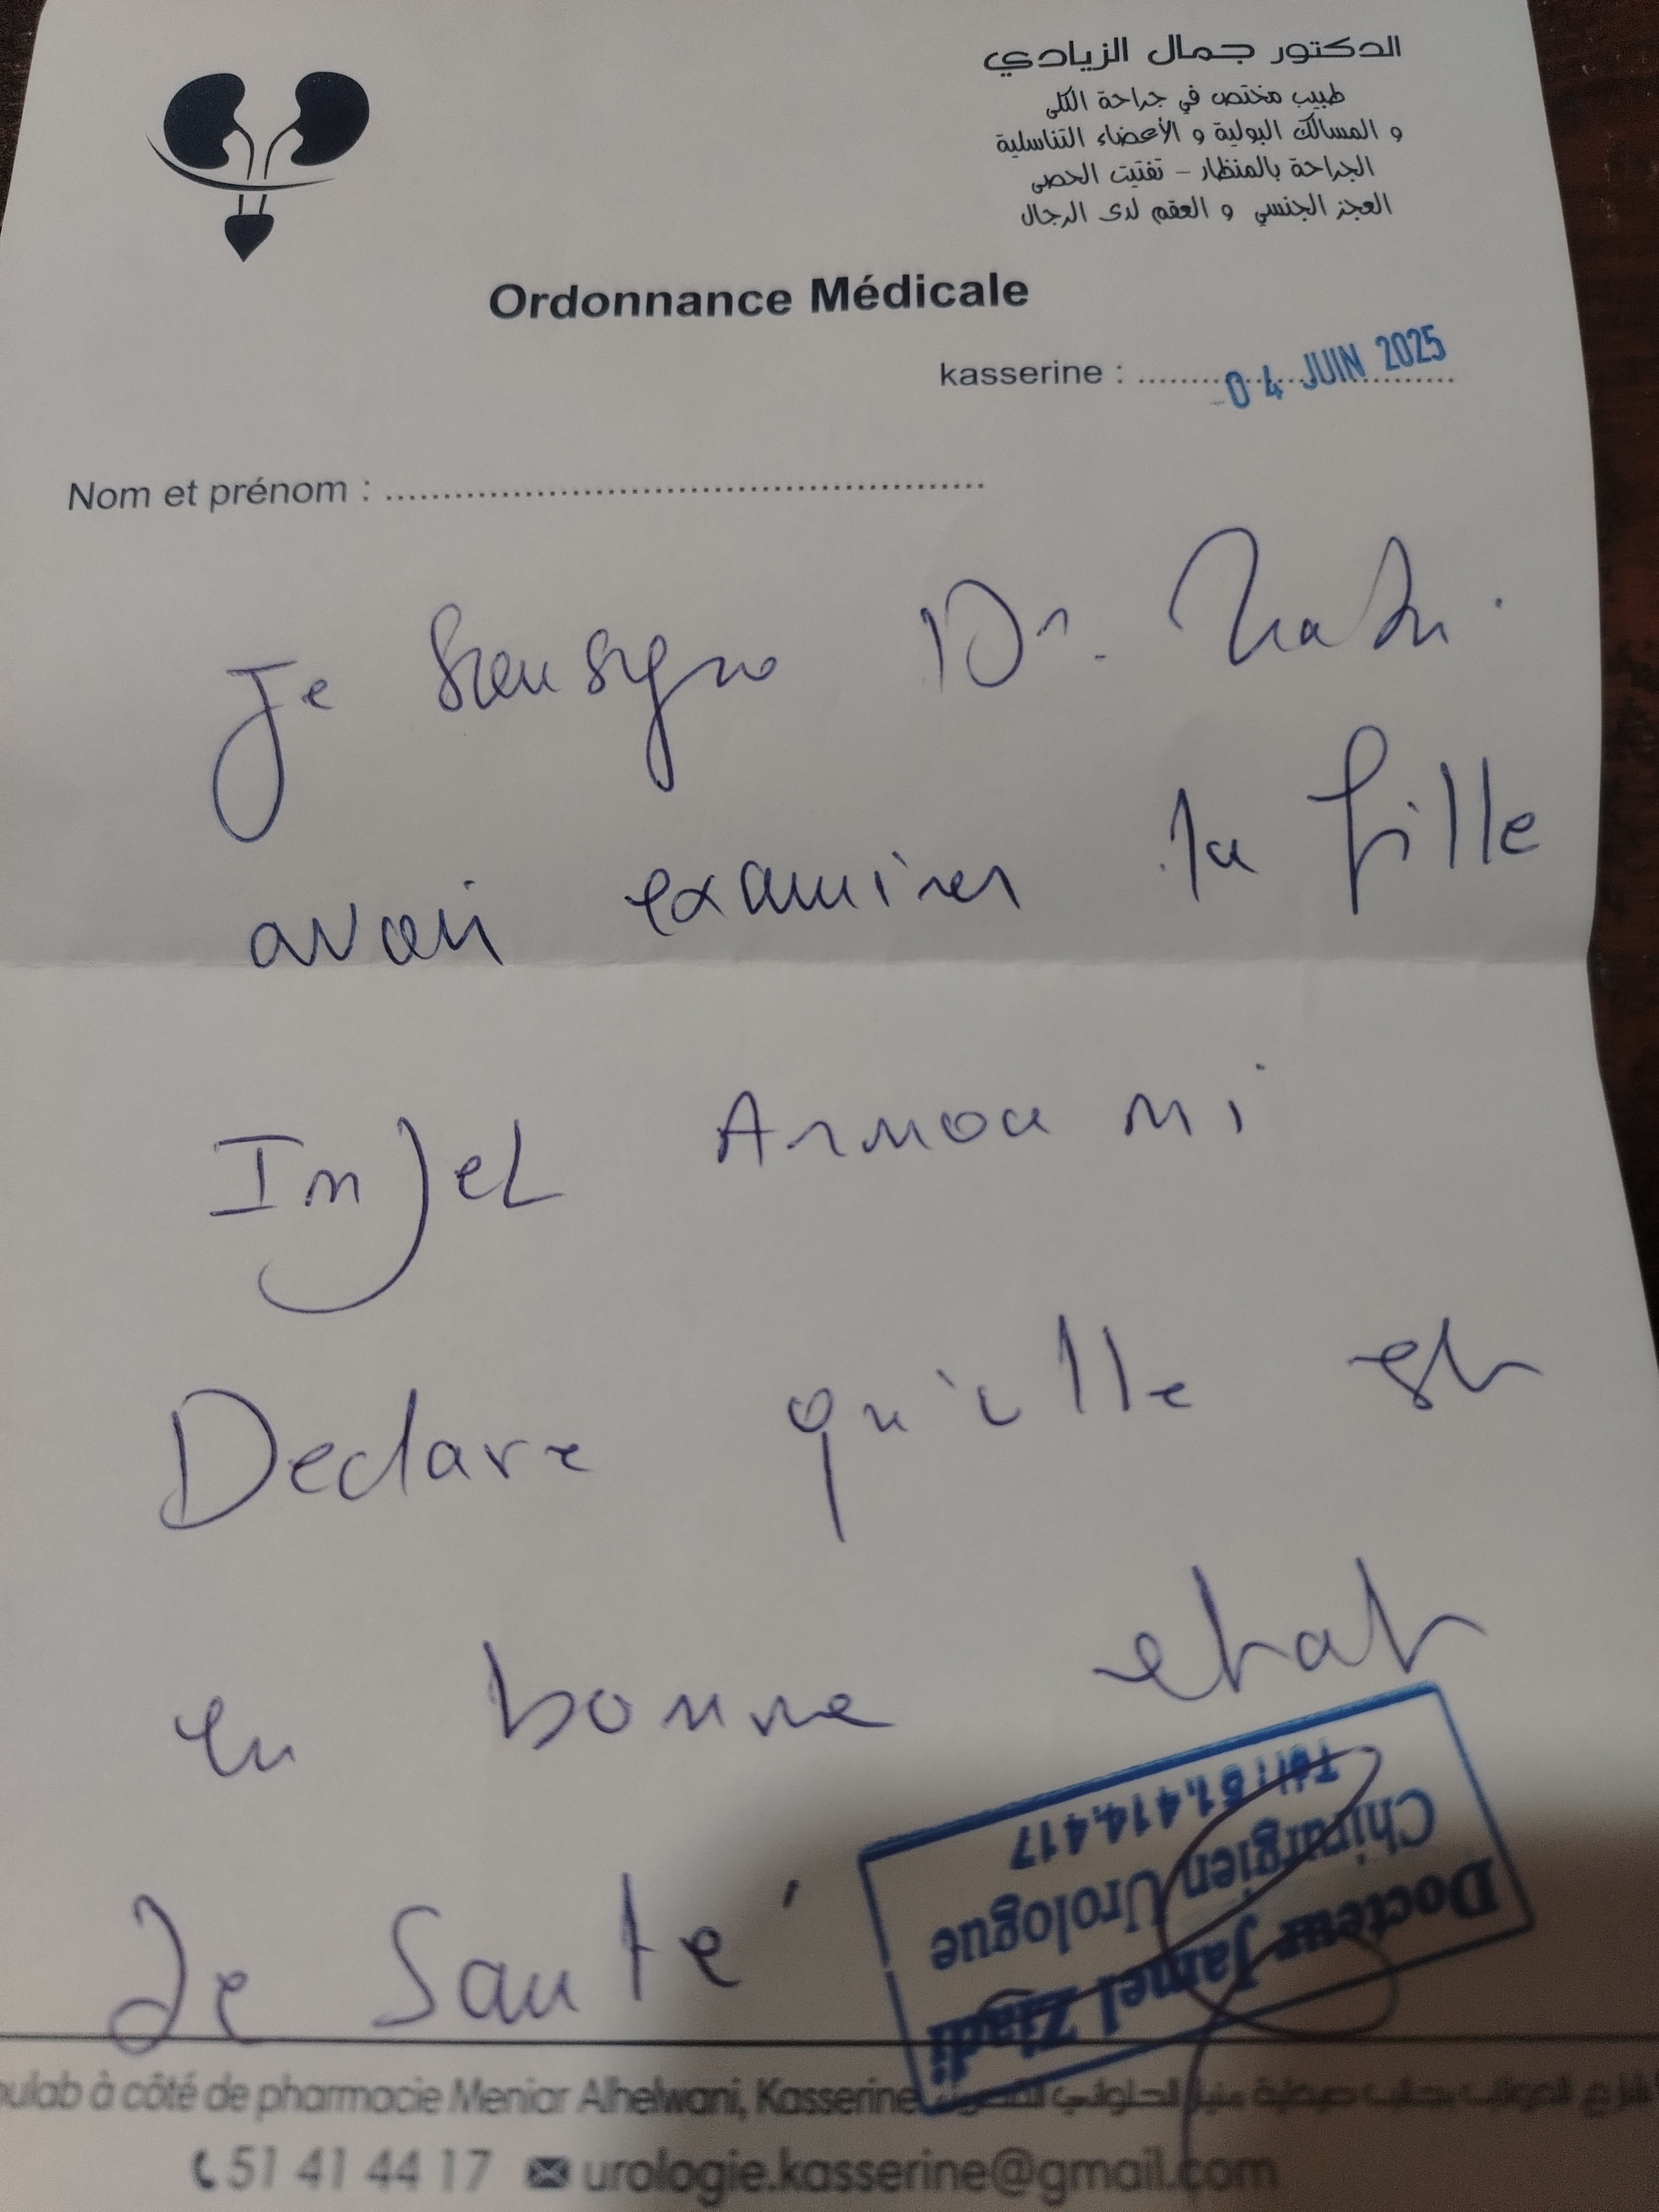 الدكتور جمال الزيادي
طبيب مختص في جراحة الكلى
و المسالك البولية و الأعضاء التناسلية
الجراحة بالمنظار - تفتيت الحصى
العجز الجنسي و العقم لدى الرجال
Ordonnance Médicale
kasserine : 04 JUIN 2025
Nom et prénom :
Je Dr.
avoir examiner la fille
InJeL Armou mi
Declare qu'ille est
en bonne etat
de Santé
Docteur Jamel Ziadi
Chirurgien Urologue
Tél : 51.414.417
à côté de pharmacie Meniar Alhelwani, Kasserine
51 41 44 17 urologie.kasserine@gmail.com